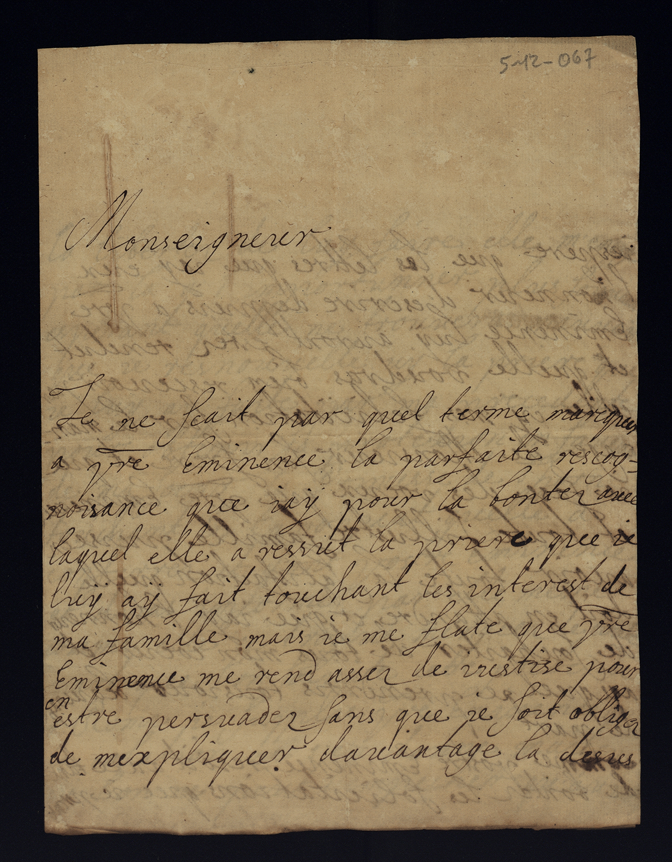 5-12-067
Monseigneur
Je ne scait par quel terme marquer
a vre Eminence la parfaite recog-
noisance que iay pour la bontez avec
laquel elle a ressut la priere que ie
luy ay fait touchant les interest de
ma famille mais ie me flate que vre
Eminence me rend asses de iustise pour
en
estre persuadez sans que je soit obliger
de mexpliquer davantage la desus